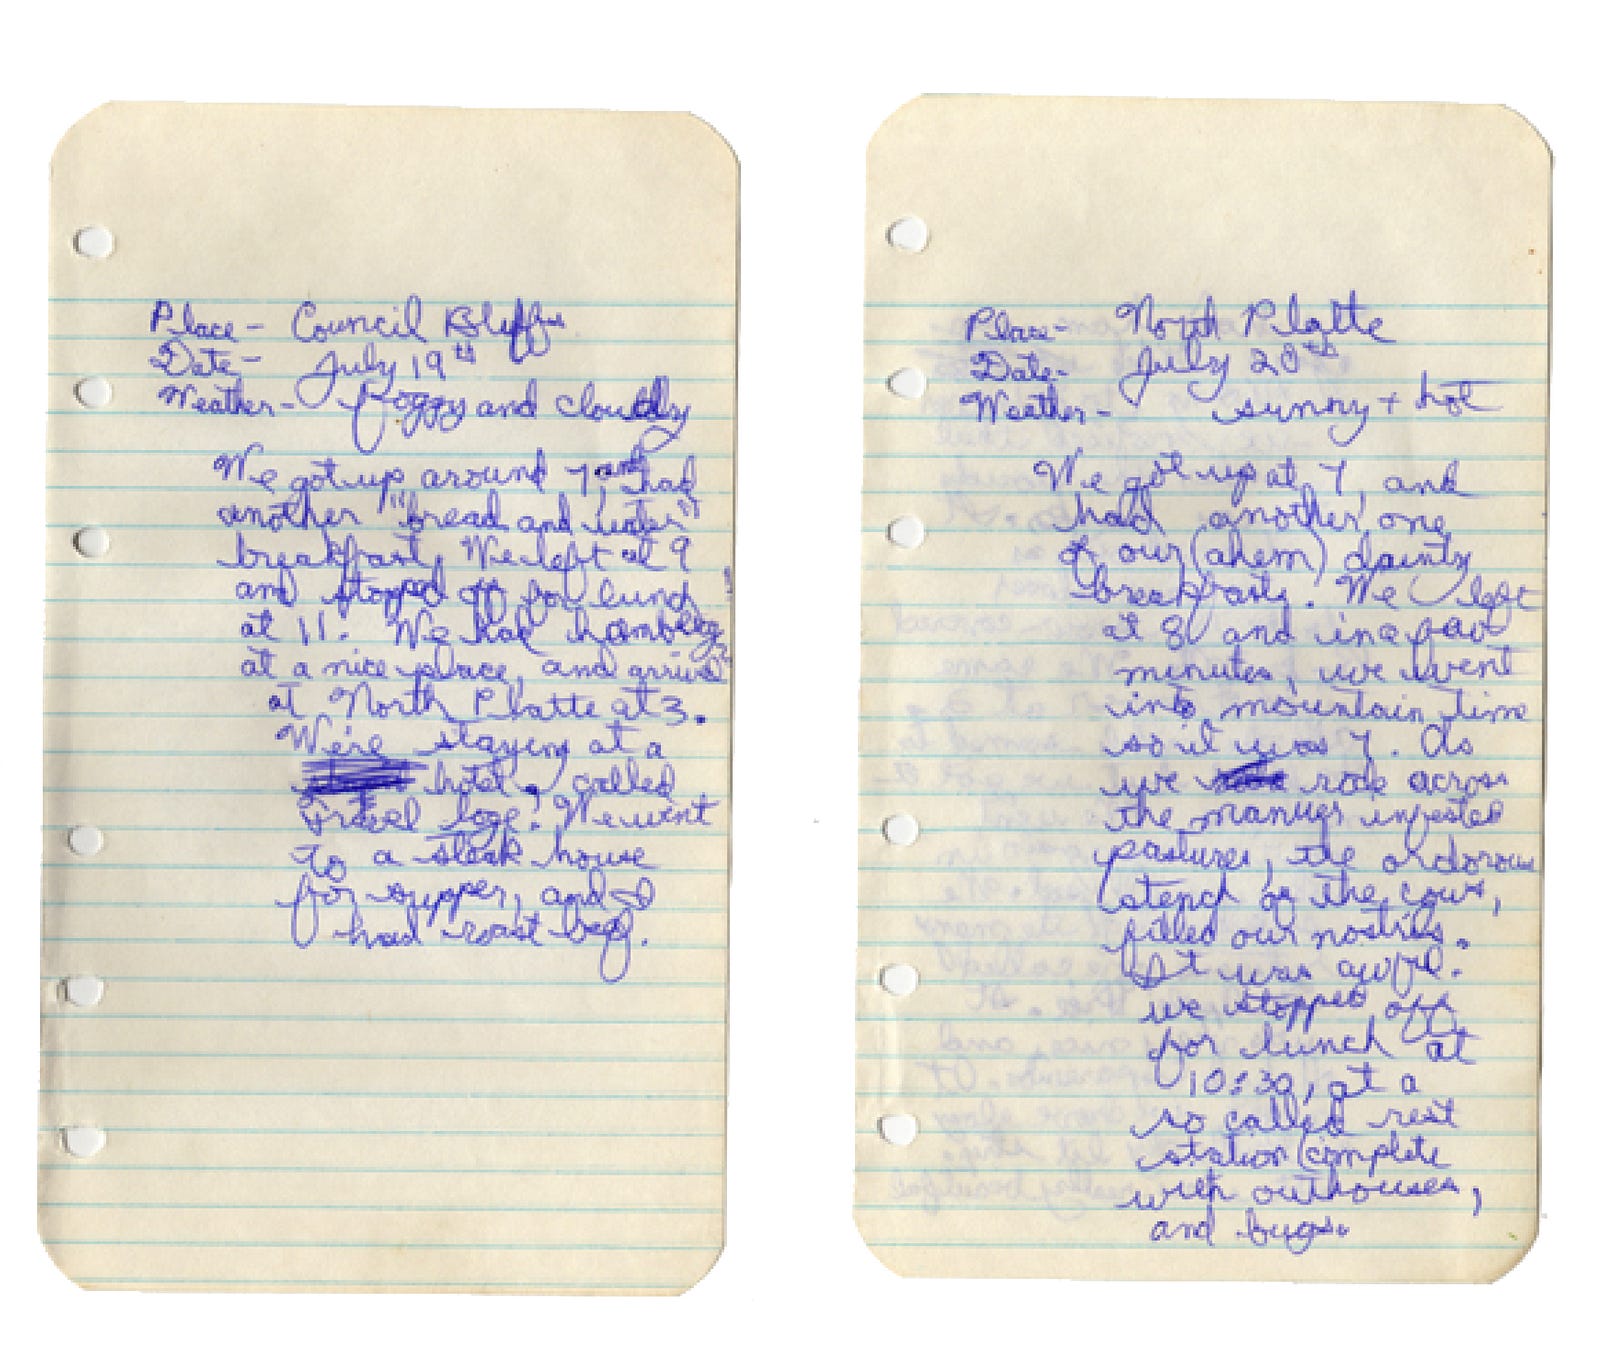 Place- Council Bluffs
Date- July 19th
Weather- foggy and cloudy
We got up around 7 and had
another "bread and water"
breakfast. We left at 9
and stopped off for lunch
at 11. We had hamburg
at a nice place, and arrive
at North Platte at 3.
We're staying at a
hotel, called
Travel loge! We went
to a steak house
for supper, and I
had roast beef.
Place- North Platte
Date- July 20th
Weather- sunny + hot
We got up at 7, and
had another one
of our (ahem) dainty
breakfasts. We left
at 8 and in a few
minutes, we went
into mountain time
so it was 7. As
we rode across
the manuer infested
pastures, the ordorous
stench of the cows,
filled our nostrils.
It was awful.
we stopped off
for lunch at
10:30, at a
so called rest
station (complete
with outhouses,
and bugs.